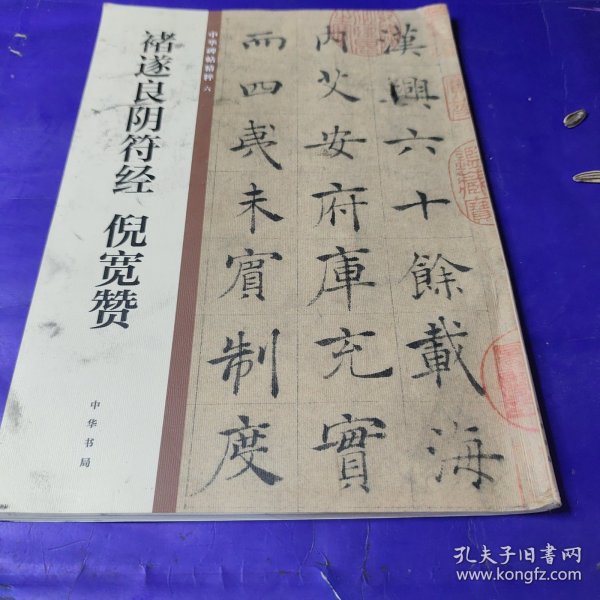 中华碑帖精粹 六
褚遂良阴符经 倪宽赞
中华书局
漢興六十餘載海
内艾安府庫充實
而四夷未賓制度
鑑藏寶
孔夫子旧书网
www.kongfz.com